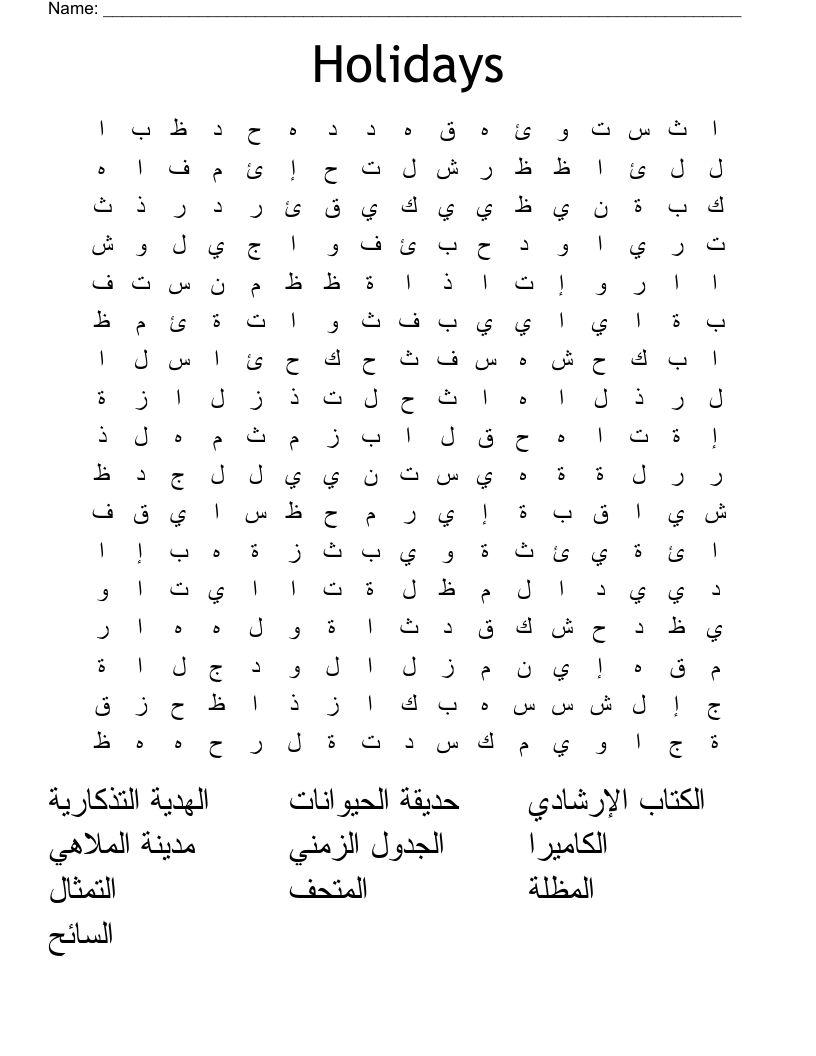 Name:
Holidays
ا ث س ت و ئ ه ق ه د د ه ح د ظ ب ا
ل ل ئ ا ظ ظ ر ش ل ت ح إ ئ م ف ا ه
ك ب ة ن ي ظ ي ي ك ي ق ئ ر د ر ذ ث
ت ر ي ا و د ح ب ئ ف و ا ج ي ل و ش
ا ا ر و إ ت ا ذ ا ة ظ ظ م ن س ت ف
ب ة ا ي ا ي ي ب ف ث و ا ت ة ئ م ظ
ا ب ك ح ش ه س ف ث ح ك ح ئ ا س ل ا
ل ر ذ ل ا ه ا ث ح ل ت ذ ز ل ا ز ة
إ ة ت ا ه ح ق ل ا ب ز م ث م ه ل ذ
ر ر ل ة ة ه ي س ت ن ي ي ل ل ج د ظ
ش ي ا ق ب ة إ ي ر م ح ظ س ا ي ق ف
ا ئ ة ي ئ ث ة و ي ب ث ز ة ه ب إ ا
د ي ي د ا ل م ظ ل ة ت ا ا ي ت ا و
ي ظ د ح ش ك ق د ث ا ة و ل ه ه ا ر
م ق ه إ ي ن م ز ل ا ل و د ج ل ا ة
ج إ ل ش س س ه ب ك ا ز ذ ا ظ ح ز ق
ة ج ا و ي م ك س د ت ة ل ر ح ه ه ظ
الكتاب الإرشادي حديقة الحيوانات الهدية التذكارية
الكاميرا الجدول الزمني مدينة الملاهي
المظلة المتحف التمثال
السائح